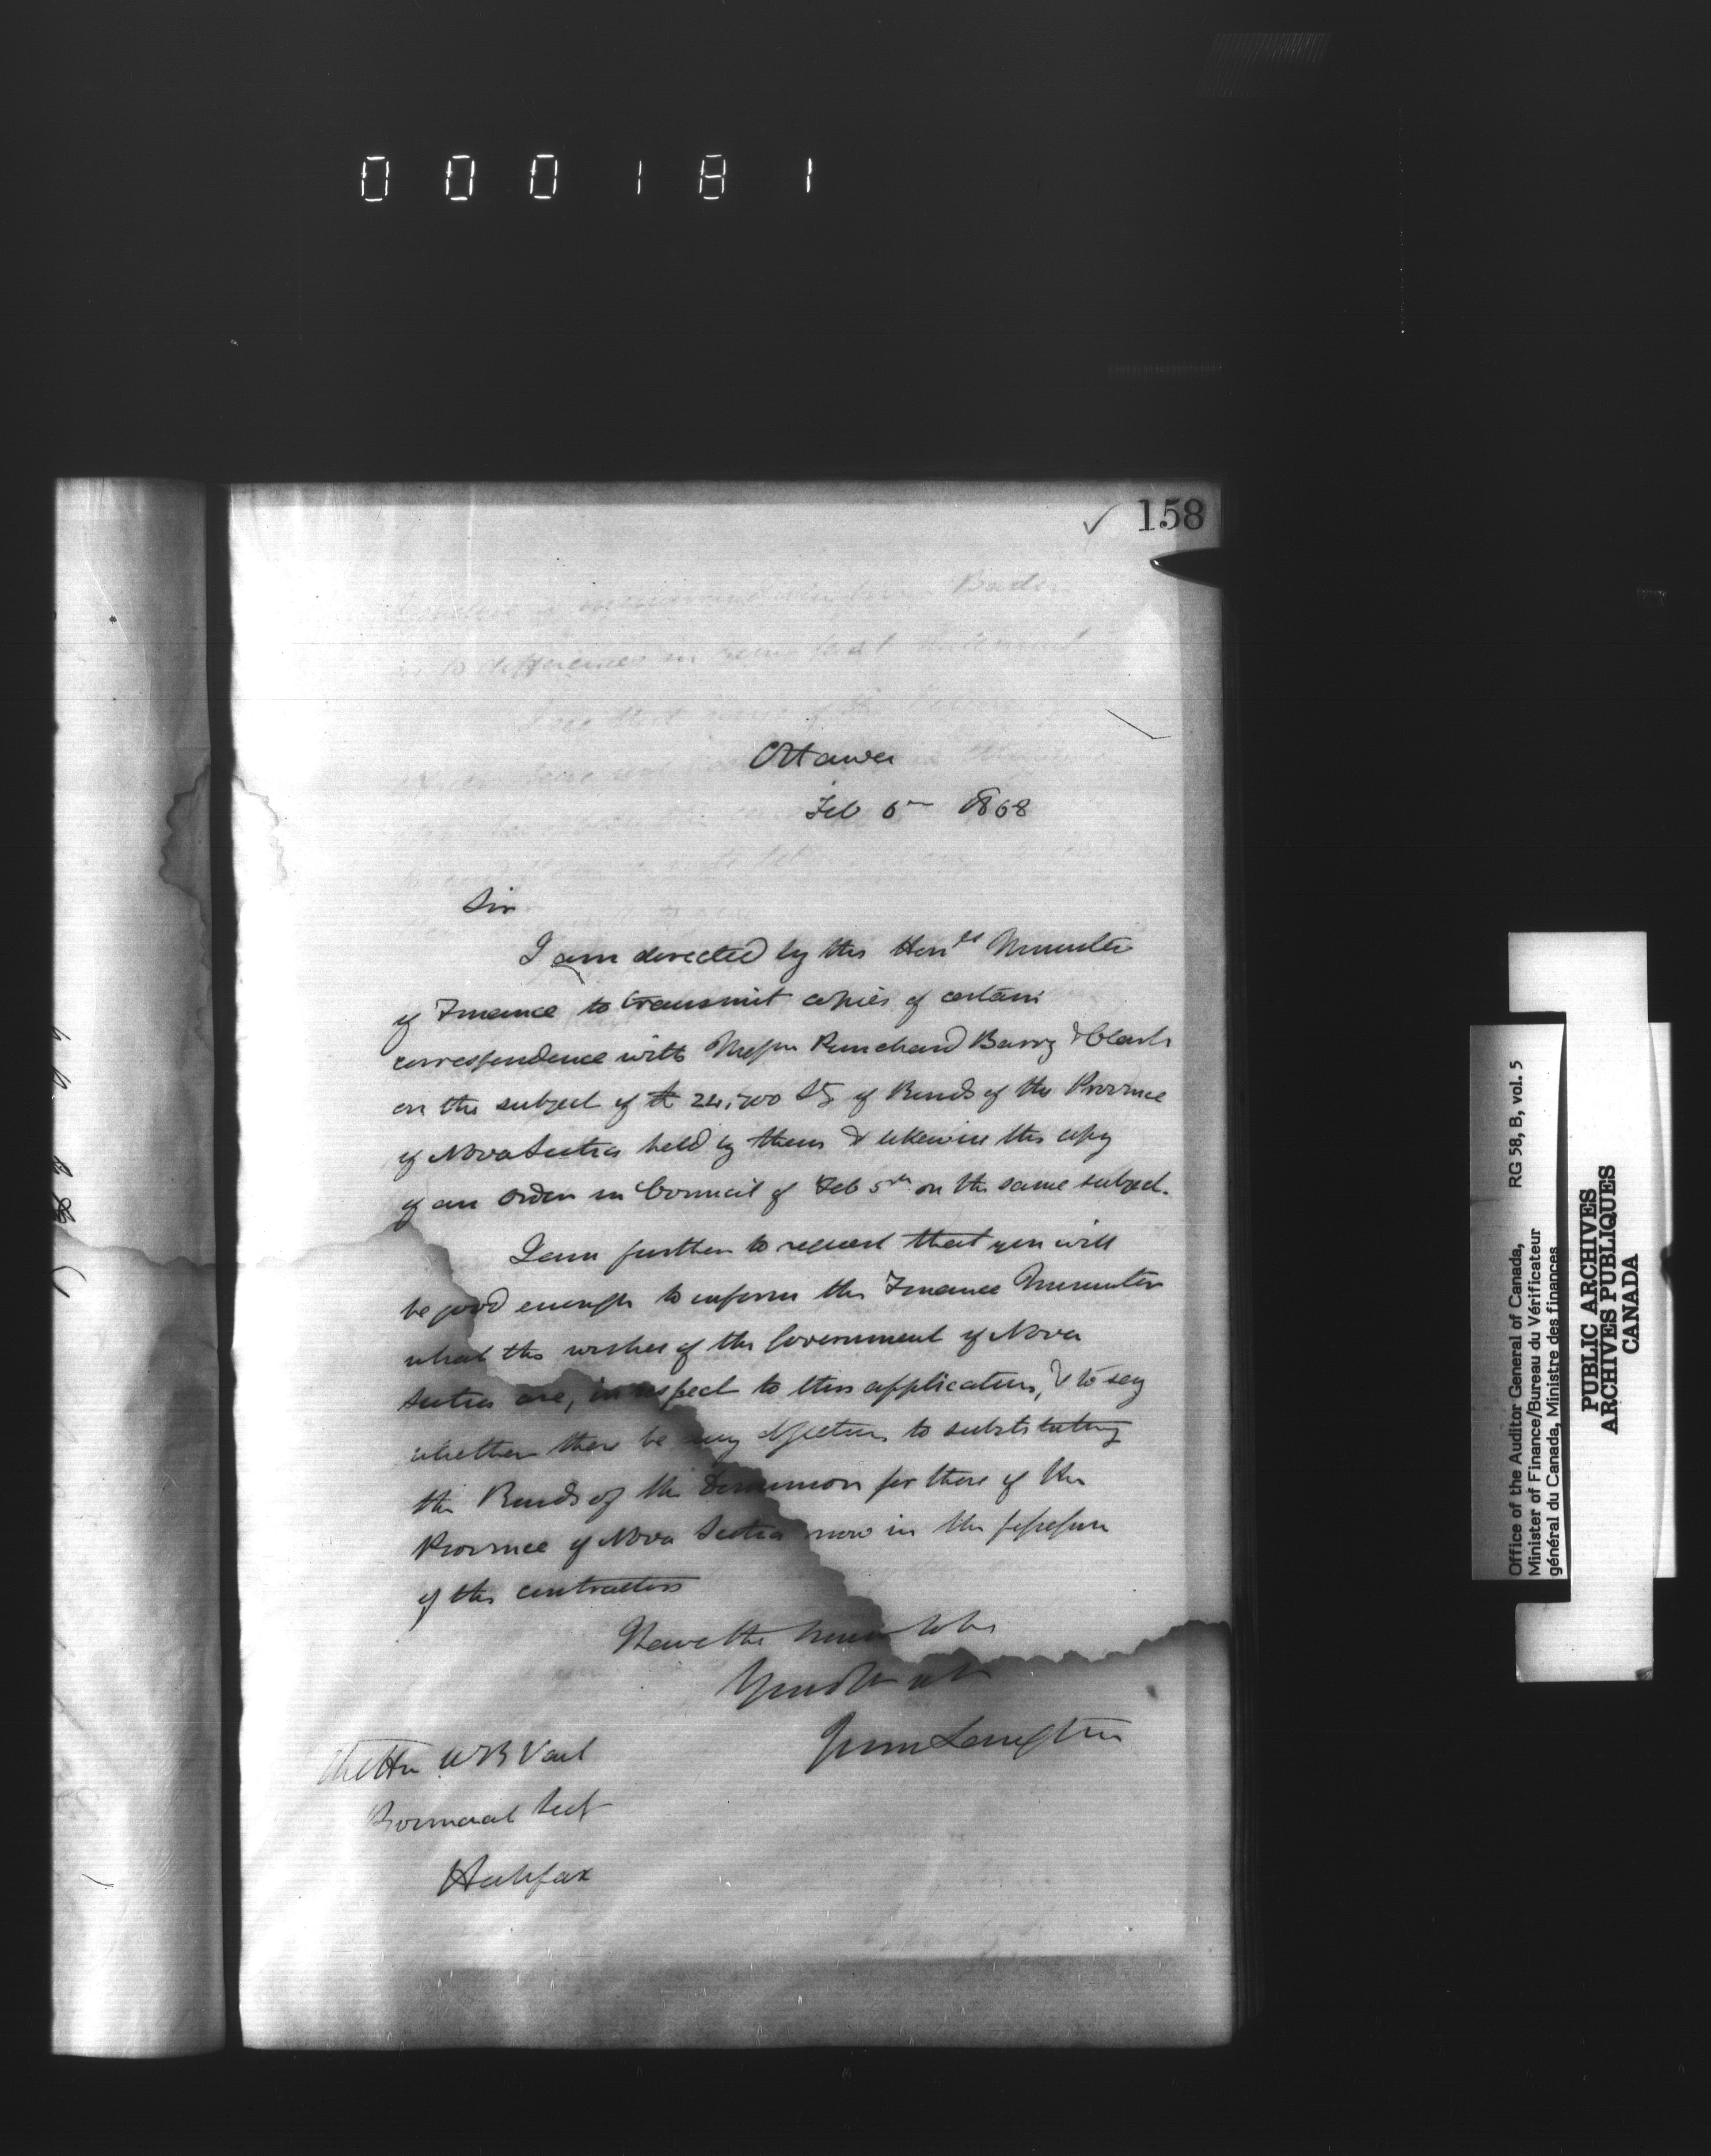 000181
158
Ottawa
Feb 6th 1868
Sir
I am directed by the Honble Minister
of Finance to transmit copies of certain
correspondence with Messrs Punchard Barry & Clark
on the subject of £ 24,700 Stg of Bonds of the Province
of Nova Scotia held by them & likewise the copy
of an Order in Council of Feb 5th on the same subject.
I am further to request that you will
be good enough to inform the Finance Minister
what the wishes of the Government of Nova
Scotia are, in respect to this application, & to say
whether there be any objection to substituting
the Bonds of the Dominion for those of the
Province of Nova Scotia now in the possession
of the contractors
I have the honor to be
Your Obt
John Langton
The Hon W B Vail
Provincial Sect
Halifax
Office of the Auditor General of Canada, RG 58, B, vol. 5
Minister of Finance/Bureau du Vérificateur
général du Canada, Ministre des finances
PUBLIC ARCHIVES
ARCHIVES PUBLIQUES
CANADA